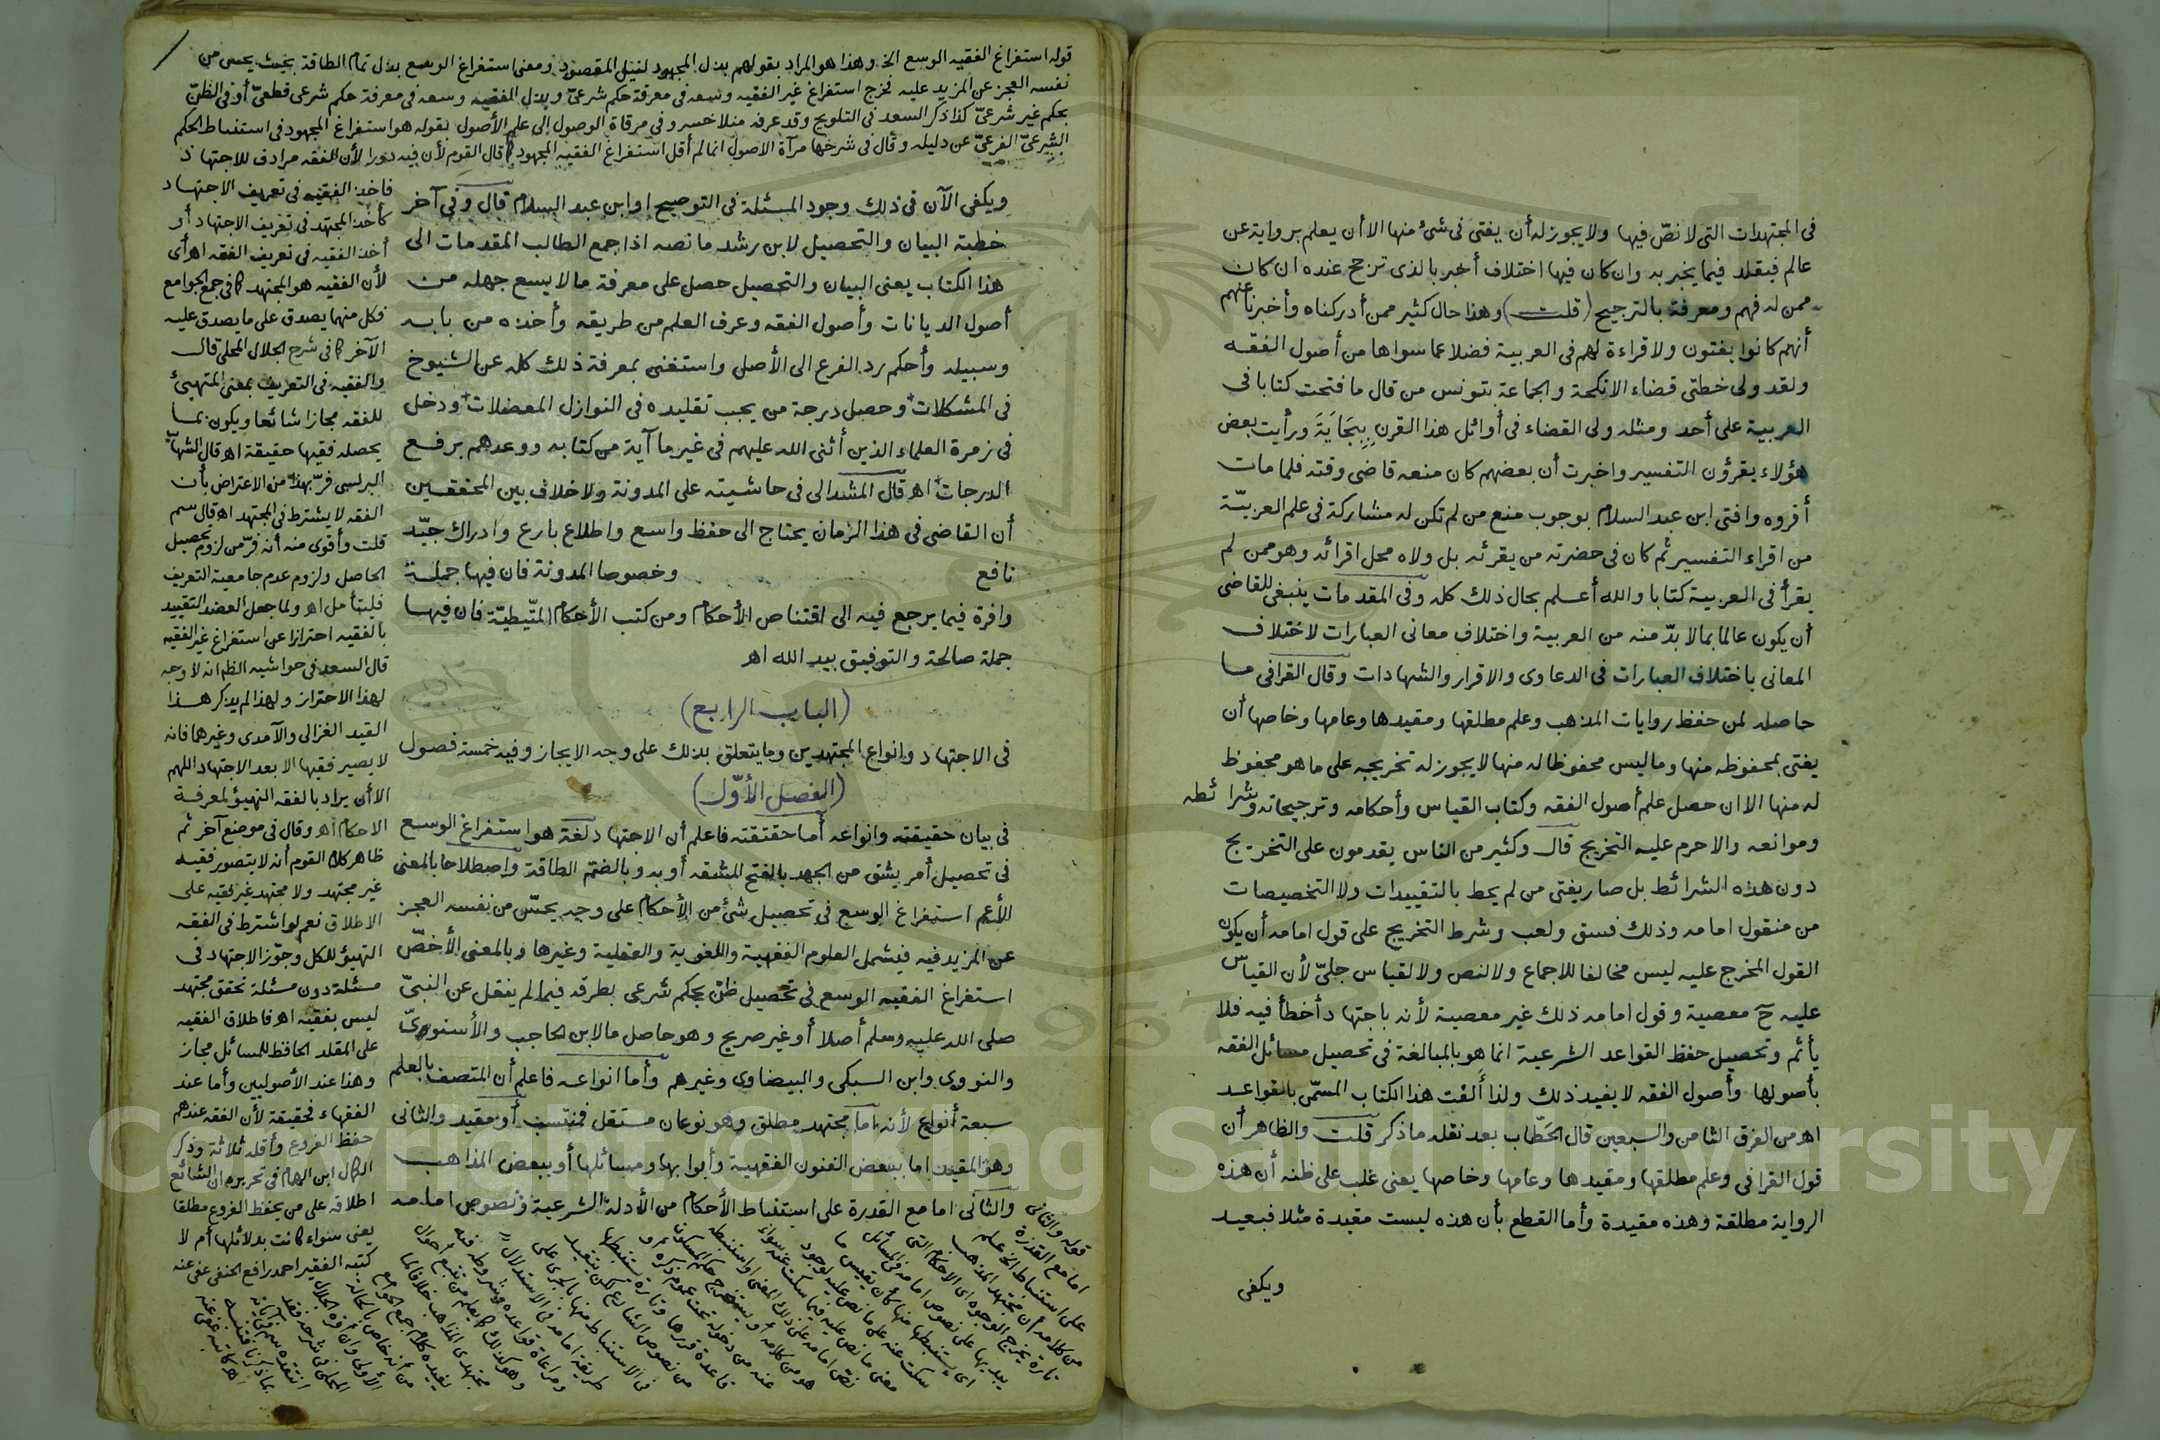 في المجتهدات التى لا نصّ فيها ولا يجوز له أن يفتى فى شئ منها الا أن يعلم برواية عن
عالم فيقلد فيما يخبر به وان كان فيها اختلاف أخبر بالذى ترجح عنده ان كان
ممن له فهم ومعرفة بالترجيح (قلت) وهذا حال كثير ممن أدركناه وأخبرنا عنهم
أنهم كانوا يفتون ولا قراءة لهم فى العربية فضلا عما سواها من أصول الفقه
ولقد ولى خطتى قضاء الانكحة والجماعة بتونس من قال ما فتحت كتابا فى
العربية على أحد ومثله ولى القضاء فى أوائل هذا القرن ببجاية ورأيت بعض
هؤلاء يقرؤن التفسير واخبرت أن بعضهم كان منعه قاضى وقته فلما مات
أقروه وافتى ابن عبد السلام بوجوب منع من لم تكن له مشاركة فى علم العربيّة
من اقراء التفسير ثم كان فى حضرته من يقرئه بل ولاه محل اقرائه وهو ممن لم
يقرأ فى العربية كتابا والله أعلم بحال ذلك كله وفى المقدمات ينبغى للقاضى
أن يكون عالما بما لا بدّ منه من العربية واختلاف معانى العبارات لاختلاف
المعانى باختلاف العبارات فى الدعاوى والاقرار والشهادات وقال القرافى ما
حاصله لمن حفظ روايات المذهب وعلم مطلقها ومقيدها وعامها وخاصها أن
يفتى بمحفوظه منها وما ليس محفوظا له منها لا يجوز له تخريجه على ما هو محفوظ
له منها الا ان حصل علم أصول الفقه وكتاب القياس وأحكامه وترجيحاته وشرائطه
وموانعه والا حرم عليه التخريج قال وكثير من الناس يقدمون على التخريج
دون هذه الشرائط بل صار يفتى من لم يحط بالتقييدات ولا التخصيصات
من منقول امامه وذلك فسق ولعب وشرط التخريج على قول امامه أن يكون
القول المخرج عليه ليس مخالفا للاجماع ولا لنص ولا لقياس جلىّ لأن القياس
عليه ح معصية وقول امامه ذلك غير معصية لأنه باجتهاد أخطأ فيه فلا
يأثم وتحصيل حفظ القواعد الشرعية انما هو بالمبالغة فى تحصيل مسائل الفقه
بأصولها وأصول الفقه لا يفيد ذلك ولذا ألفت هذا الكتاب المسمّى بالقواعد
اهـ من الفرق الثامن والسبعين قال الحطّاب بعد نقله ما ذكر قلت والظاهر أن
قول القرافى وعلم مطلقها ومقيدها وعامها وخاصها يعنى غلب على ظنه أن هذه
الرواية مطلقة وهذه مقيدة وأما القطع بأن هذه ليست مقيدة مثلا فبعيد
ويكفى
قوله استفراغ الفقيه الوسع الخ وهذا هو المراد بقولهم بذل المجهود لنيل المقصود ومعنى استفراغ الوسع بذل تمام الطاقة بحيث يحس من
نفسه العجز عن المزيد عليه فخرج استفراغ غير الفقيه وسعه فى معرفة حكم شرعىّ وبذل الفقيه وسعه فى معرفة حكم شرعى قطعىّ أو فى الظنّ
بحكم غير شرعىّ كذا ذكر السعد فى التلويح وقد عرفه منلا خسرو فى مرقاة الوصول الى علم الأصول بقوله هو استفراغ المجهود فى استنباط الحكم
الشرعىّ الفرعىّ عن دليله وقال فى شرحها مرآة الاصول انما لم أقل استفراغ الفقيه المجهود كما قال القوم لأن فيه دورا لأن الفقه مرادف للاجتهاد
ويكفى الآن فى ذلك وجود المسئلة فى التوضيح او ابن عبد السلام قال وفى آخر
خطبة البيان والتحصيل لابن رشد ما نصه اذا جمع الطالب المقدمات الى
هذا الكتاب يعنى البيان والتحصيل حصل على معرفة ما لا يسع جهله من
أصول الديانات وأصول الفقه وعرف العلم من طريقه وأخذه من بابه
وسبيله وأحكم رد الفرع الى الأصل واستغنى بمعرفة ذلك كله عن الشيوخ
فى المشكلات وحصل درجة من يجب تقليده فى النوازل المعضلات ودخل
فى زمرة العلماء الذين أثنى الله عليهم فى غير ما آية من كتابه ووعدهم برفع
الدرجات اهـ قال المشدالى فى حاشيته على المدونة ولا خلاف بين المحققين
أن القاضى فى هذا الزمان يحتاج الى حفظ واسع واطلاع بارع وادراك جيّد
نافع وخصوصا المدونة فان فيها جملة
وافرة فيما يرجع فيه الى اقتناص الأحكام ومن كتب الأحكام المتّيطيّة فان فيها
جملة صالحة والتوفيق بيد الله اهـ
(الباب الرابع)
فى الاجتهاد وانواع المجتهدين وما يتعلق بذلك على وجه الايجاز وفيه خمسة فصول
(الفصل الأوّل)
فى بيان حقيقته وانواعه أما حقيقته فاعلم أن الاجتهاد لغة هو استفراغ الوسع
فى تحصيل أمر يشق من الجهد بالفتح للمشقه أو به وبالضم الطاقة واصطلاحا بالمعنى
الأعم استفراغ الوسع فى تحصيل شئ من الأحكام على وجه يحسّ من نفسه العجز
عن المزيد فيه فيشمل العلوم الفقهية واللغوية والعقلية وغيرها وبالمعنى الأخصّ
استفراغ الفقيه الوسع فى تحصيل ظن بحكم شرعى بطرقه فيما لم ينقل عن النبىّ
صلى الله عليه وسلم أصلا أو غير صريح وهو حاصل ما لابن الحاجب والأسنوىّ
والنووى وابن السبكى والبيضاوى وغيرهم وأما انواعه فاعلم أن المتصف بالعلم
سبعة أنواع لأنه اما مجتهد مطلق وهو نوعان مستقل فمنتسب أو مقيد والثانى
وهو المقيد اما ببعض الفنون الفقهية وأبوابها ومسائلها أو ببعض المذاهب
والثانى اما مع القدرة على استنباط الأحكام من الأدلة الشرعية ونصوص امامه
فاخذ الفقيه فى تعريف الاجتهاد
كأخذ المجتهد فى تعريف الاجتهاد أو
أخذ الفقيه فى تعريف الفقه اهـ أى
لأن الفقيه هو المجتهد كما فى جمع الجوامع
فكل منهما يصدق على ما يصدق عليه
الآخر كما فى شرح الجلال المحلى قال
والفقيه فى التعريف بمعنى المتهيئ
للفقه مجازا شائعا ويكون بما
يحصله فقيها حقيقة اهـ قال الشهاب
البرلسى فرّ بهذا من الاعتراض بأن
الفقه لا يشترط فى المجتهد اهـ قال سم
قلت وأقوى منه أنه فرّ من لزوم تحصيل
الحاصل ولزوم عدم جامعية التعريف
فليتأمل اهـ ولما جعل العضد التقييد
بالفقيه احترازا عن استفراغ غير الفقيه
قال السعد فى حواشيه الظم انه لا وجه
لهذا الاحتراز ولهذا لم يذكر هذا
القيد الغزالى والآمدى وغيرهما فانه
لا يصير فقيها الا بعد الاجتهاد اللهم
الا أن يراد بالفقه التهيؤ لمعرفة
الاحكام اهـ وقال فى موضع آخر ثم
ظاهر كلام القوم أنه لا يتصور فقيه
غير مجتهد ولا مجتهد غير فقيه على
الاطلاق نعم لو اشترط فى الفقيه
التهيؤ للكل وجوّز الاجتهاد فى
مسئلة دون مسئلة تحقق مجتهد
ليس بفقيه اهـ فاطلاق الفقيه
على المقلد الحافظ للمسائل مجاز
وهذا عند الأصوليين وأما عند
الفقهاء فحقيقة لأن الفقه عندهم
حفظ الفروع وأقله ثلاثة وذكر
الكمال ابن الهمام فى تحريره ان الشائع
اطلاقه على من يحفظ الفروع مطلقا
يعنى سواء كانت بدلائلها أم لا
كتبه الفقير احمد رافع الحنفى عفى عنه
قوله والثانى
اما مع القدرة
على استنباط الخ علم
من كلامه أن مجتهد المذهب
تارة يخرج الوجوه اى الاحكام التى
يبديها على نصوص امامه فى المسائل
Copyright © King Saud University
1957